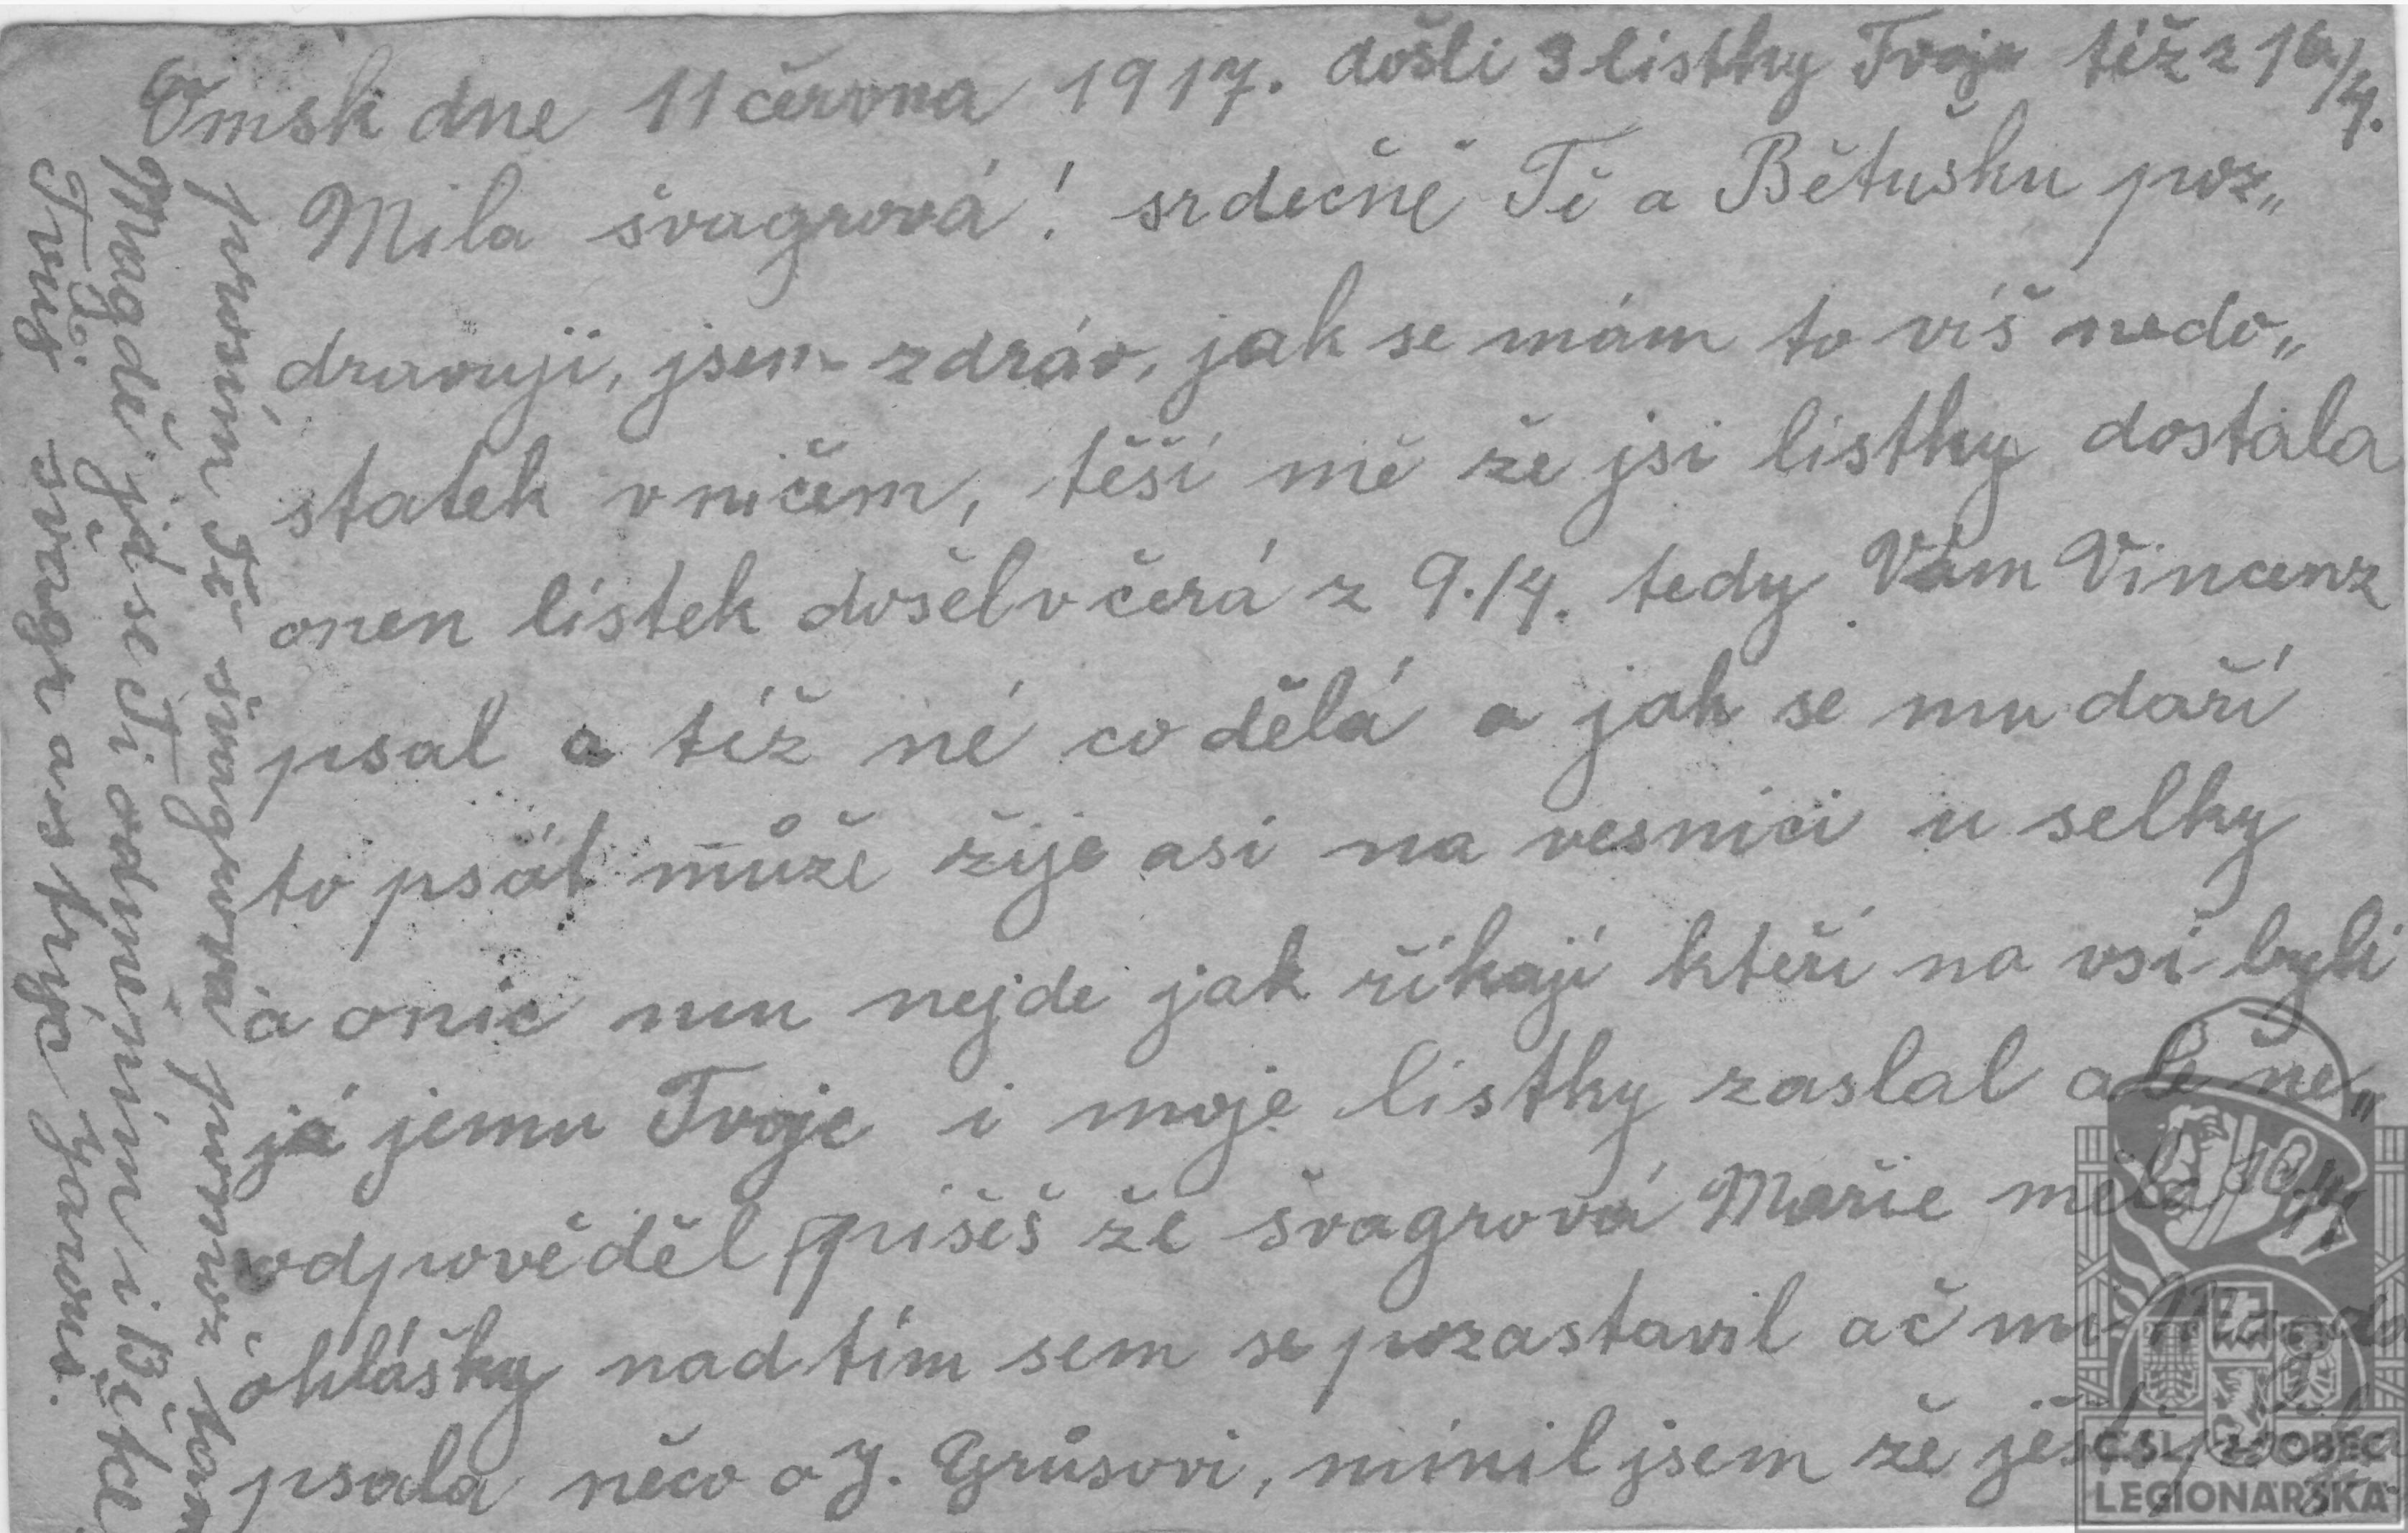 Omsk dne 11 června 1917. došli 3 listky Tvoje tíž z 16/4.
Mila švagrová! srdečně Tě a Bětušku poz„
dravuji, jsem zdráv, jak se mám to víš nedo„
statek v ničem, těší mě že jsi listky dostala
onen lístek došel včerá z 9./4. tedy Vám Vincenz
psal a tíž né co dělá a jak se mu daří
to psát může žije asi na vesnici u selky
a onic mu nejde jak říkají kteří na vsi byli
já jemu Tvoje i moje listky zaslal ale ne„
odpověděl píšeš že švagrová Marie měla
ohlášky nad tím sem se pozastavil ač mi Magda
psala něco o J. Grůsovi, mínil jsem že ještě
prosím Tě švagrová pomoz tam
Magdě já se Ti odměním i Bětce
Tvůj švagr a strýc
ČSL. OBEC
LEGIONÁŘSKÁ